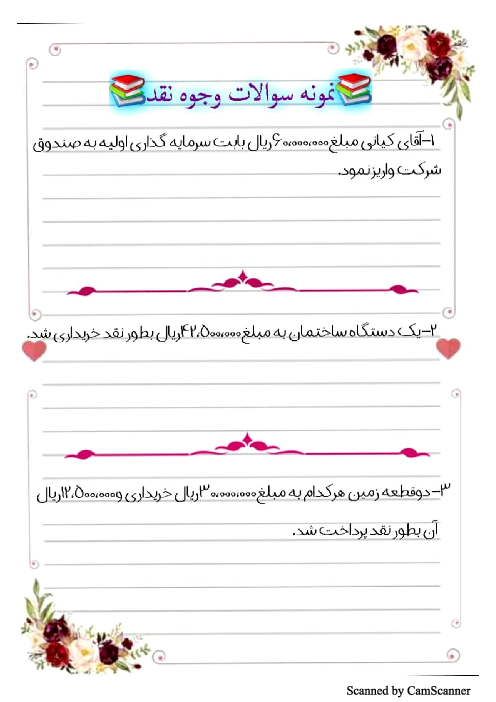 نمونه سوالات وجوه نقد
۱-آقای کیانی مبلغ ۶۰،۰۰۰،۰۰۰ریال بابت سرمایه گذاری اولیه به صندوق
شرکت واریز نمود.
۲-یک دستگاه ساختمان به مبلغ ۴۲،۵۰۰،۰۰۰ریال بطور نقد خریداری شد.
۳-دوقطعه زمین هرکدام به مبلغ ۳۰،۰۰۰،۰۰۰ریال خریداری و ۱۲،۵۰۰،۰۰۰ریال
آن بطور نقد پرداخت شد.
Scanned by CamScanner